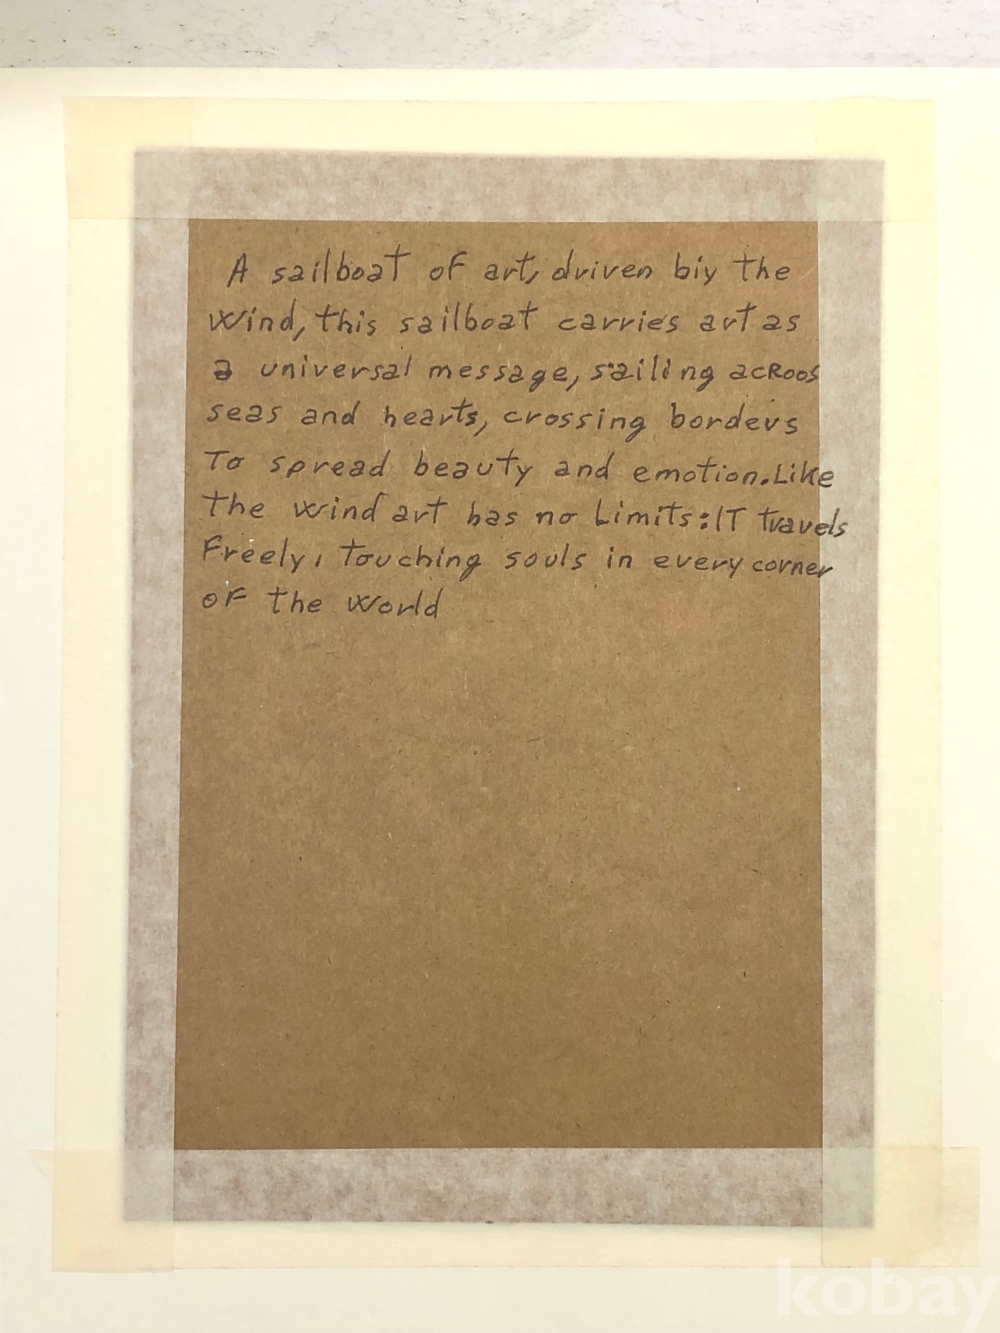 A sailboat of art, driven biy the
wind, this sailboat carries art as
a universal message, sailing acRoos
seas and hearts, crossing borders
To spread beauty and emotion. Like
the wind art has no Limits: IT travels
Freely, Touching souls in every corner
oF the world
kobay